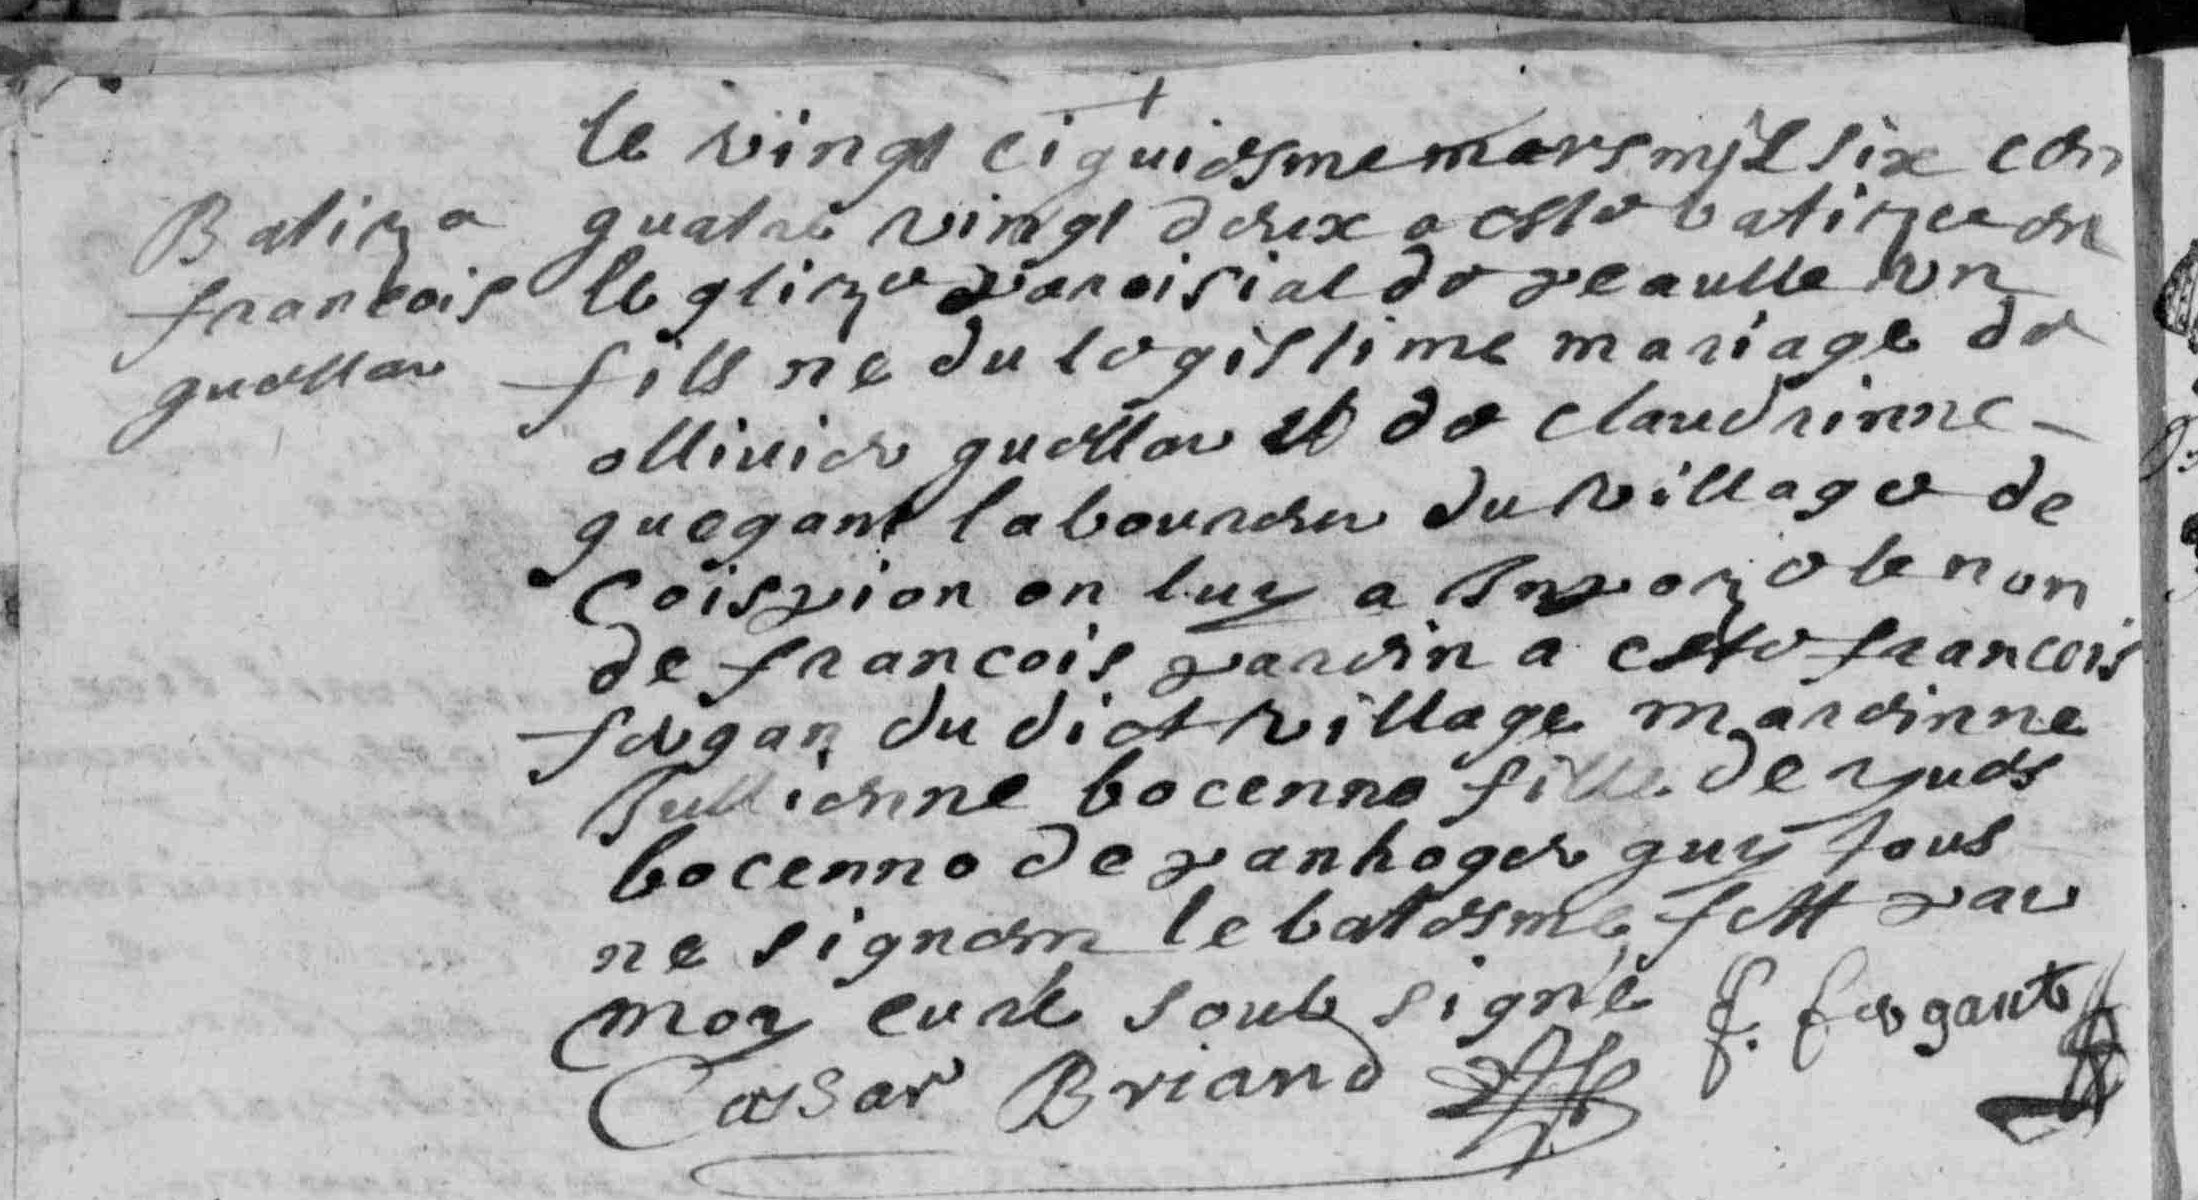 Batize
francois
guellar
le vingt ciquiesme mars mil six cen
quatre vingt deux a este batizee en
leglize paroisial de peaulle un
fills ne du legistime mariage de
ollivier guellar et de claudrinne
guegant laboureur du village de
Coispion on luy a Inpoze le non
de francois parein a este francois
fergan du dict village mareinne
Jullienne bocenno fille de yues
bocenno de panhoger quy tous
ne signen le batesme fett par
moy curé soub signé
f. fergant
Cessar Briand